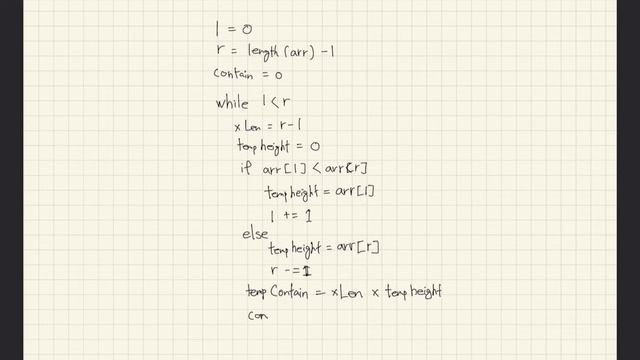 l = 0
r = length(arr) - 1
contain = 0
while l < r
xLen = r - l
tempheight = 0
if arr[l] < arr[r]
tempheight = arr[l]
l += 1
else
tempheight = arr[r]
r -= 1
tempContain = xLen x tempheight
con